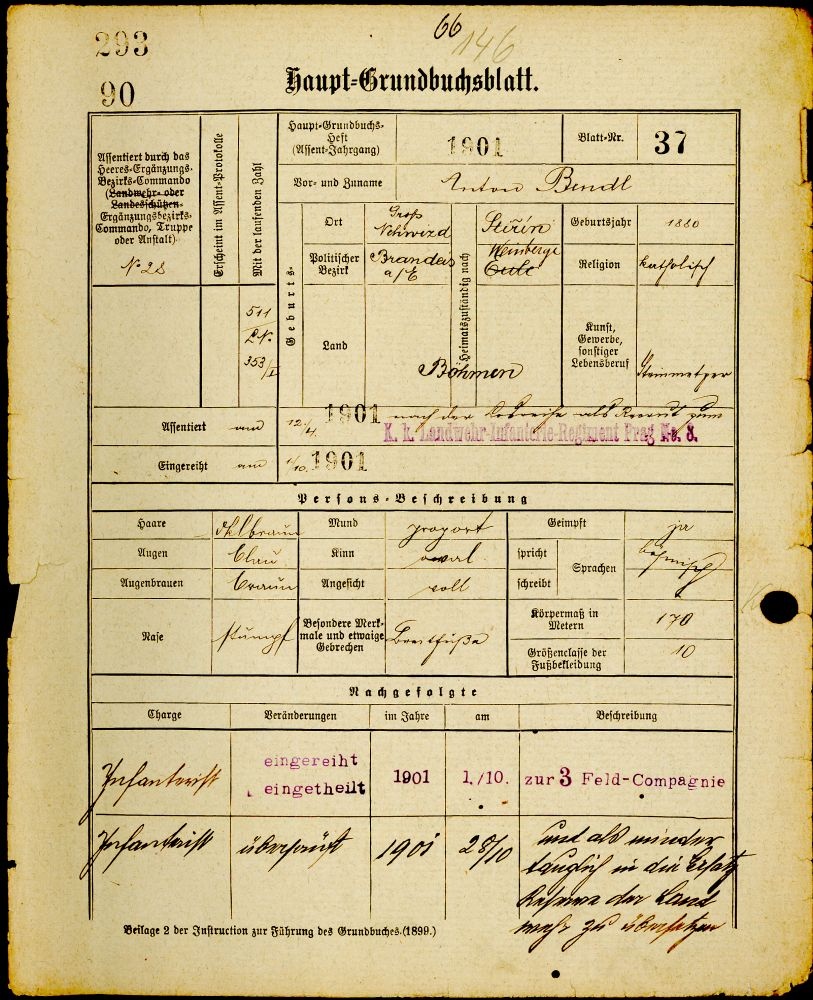 66
293
146
90
Haupt-Grundbuchsblatt.
Assentiert durch das
Heeres-Ergänzungs-
Bezirks-Commando
(Landwehr- oder
Landesschützen-
Ergänzungsbezirks-
Commando, Truppe
oder Anstalt)
№ 28
Erscheint im Assent-Protokolle
Mit der laufenden Zahl
511
353/I
Haupt-Grundbuchs-
Heft
(Assent-Jahrgang)
1901
Blatt-Nr.
37
Vor- und Zuname
Anton Bendl
Geburts-
Ort
Groß
Nehwizd
Politischer
Bezirk
Brandeis
a/E
Land
Böhmen
Heimatszuständig nach
Stiřin
Weinberge
Eule
Geburtsjahr
1880
Religion
katholisch
Kunst,
Gewerbe,
sonstiger
Lebensberuf
Steinmetzer
Assentiert
am
12./4. 1901 nach der Losreihe als Rekrut zum
K. k. Landwehr-Infanterie-Regiment Prag No. 8.
Eingereiht
am
1/10. 1901
Persons-Beschreibung
Haare
dklbraun
Mund
proport
Geimpft
ja
Augen
blau
Kinn
oval
spricht
Sprachen
böhmisch
Augenbrauen
braun
Angesicht
voll
schreibt
Nase
stumpf
Besondere Merk-
male und etwaige
Gebrechen
Breitfüße
Körpermaß in
Metern
170
Größenclasse der
Fußbekleidung
10
Nachgefolgte
Charge
Veränderungen
im Jahre
am
Beschreibung
Infanterist
eingereiht
eingetheilt
1901
1./10.
zur 3 Feld-Compagnie
Infanterist
überprüft
1901
28/10
und als minder
tauglich in die Ersatz
Reserve der Land
wehr zu übersetzen
Beilage 2 der Instruction zur Führung des Grundbuches. (1899.)